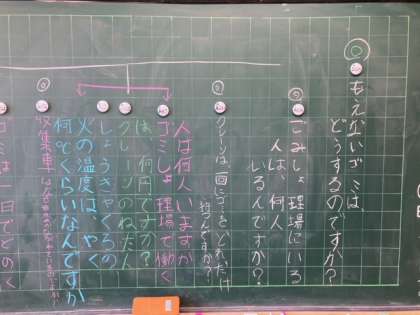 もえないゴミは
どうするのですか？
ごみしょ理場にいる
人は、何人
いるんですか？
クレーンは一回にゴミをどれだけ
持つんですか？
人は何人いますか
ゴミしょ理場で働く
は、何円ですか？
クレーンのねだん
しょうきゃくろの
火の温度は、やく
何どくらいなんですか
収集車
ゴミは一日でどのく